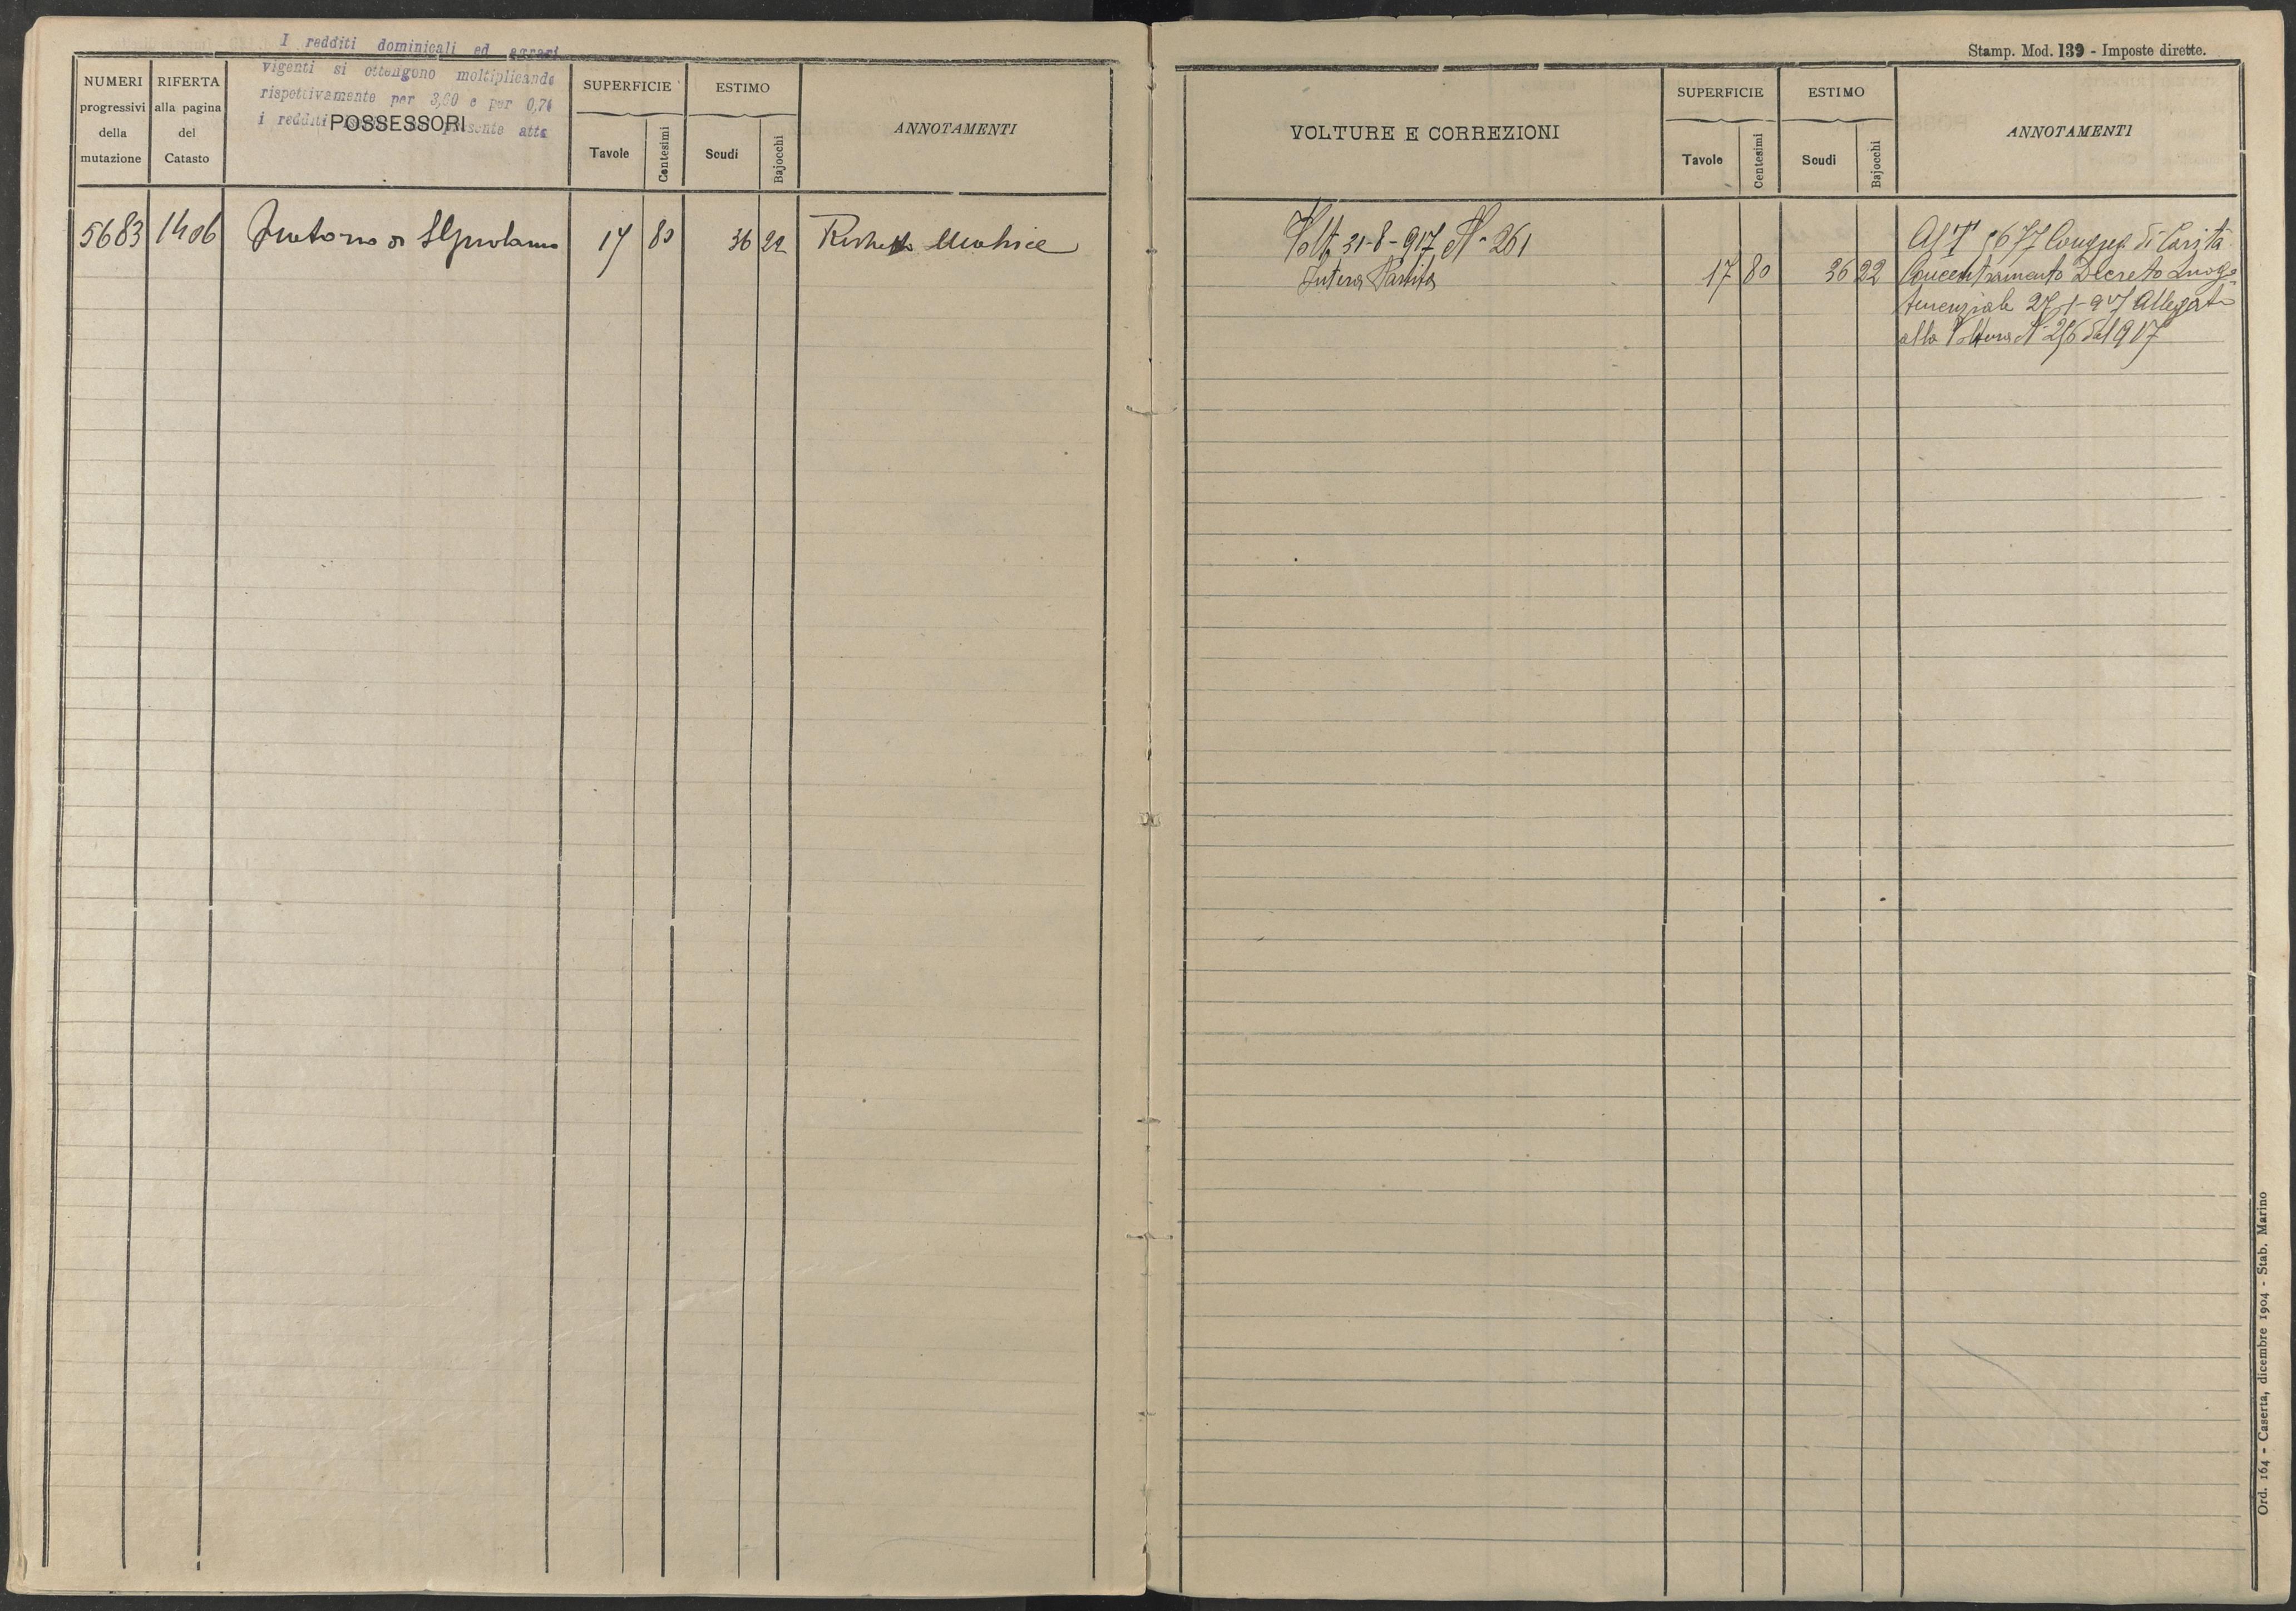 I redditi dominicali ed agrari
vigenti si ottengono moltiplicando
rispettivamente per 3,60 e per 0,76
i redditi presente atto
NUMERI progressivi della mutazione
RIFERTA alla pagina del Catasto
POSSESSORI
SUPERFICIE
Tavole
Centesimi
ESTIMO
Scudi
Bajocchi
ANNOTAMENTI
5683 1406 17 80 36 22 Matrice
Stamp. Mod. 139 - Imposte dirette.
VOLTURE E CORREZIONI
SUPERFICIE
Tavole
Centesimi
ESTIMO
Scudi
Bajocchi
ANNOTAMENTI
Volt. 31-8-917 N. 261
Intera Partita 17 80 36 22
Al T 5677 Congreg di Carità
Concentramento Decreto Luogo
tenenziale Allegato
alla Voltura N. 256 del 1917
Ord. 164 - Caserta, dicembre 1904 - Stab. Marino